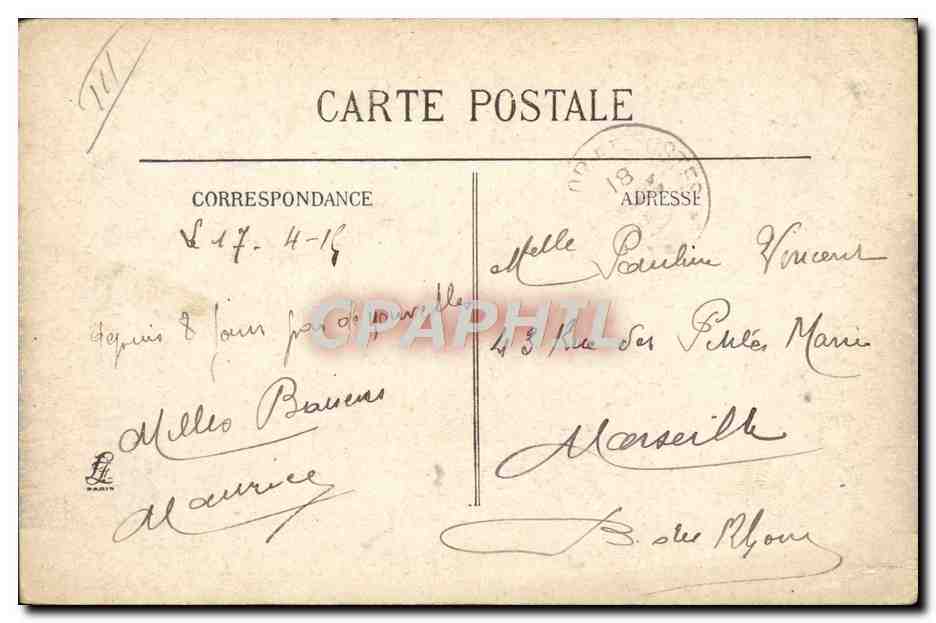 111
CARTE POSTALE
CORRESPONDANCE
Le 17-4-15
depuis 8 jours pas de nouvelles
Milles Baisers
Maurice
LL
PARIS
ADRESSE
18
Melle Pauline Vincent
43 Rue des Petites Maries
Marseille
B. du Rhone
CPAPHIL